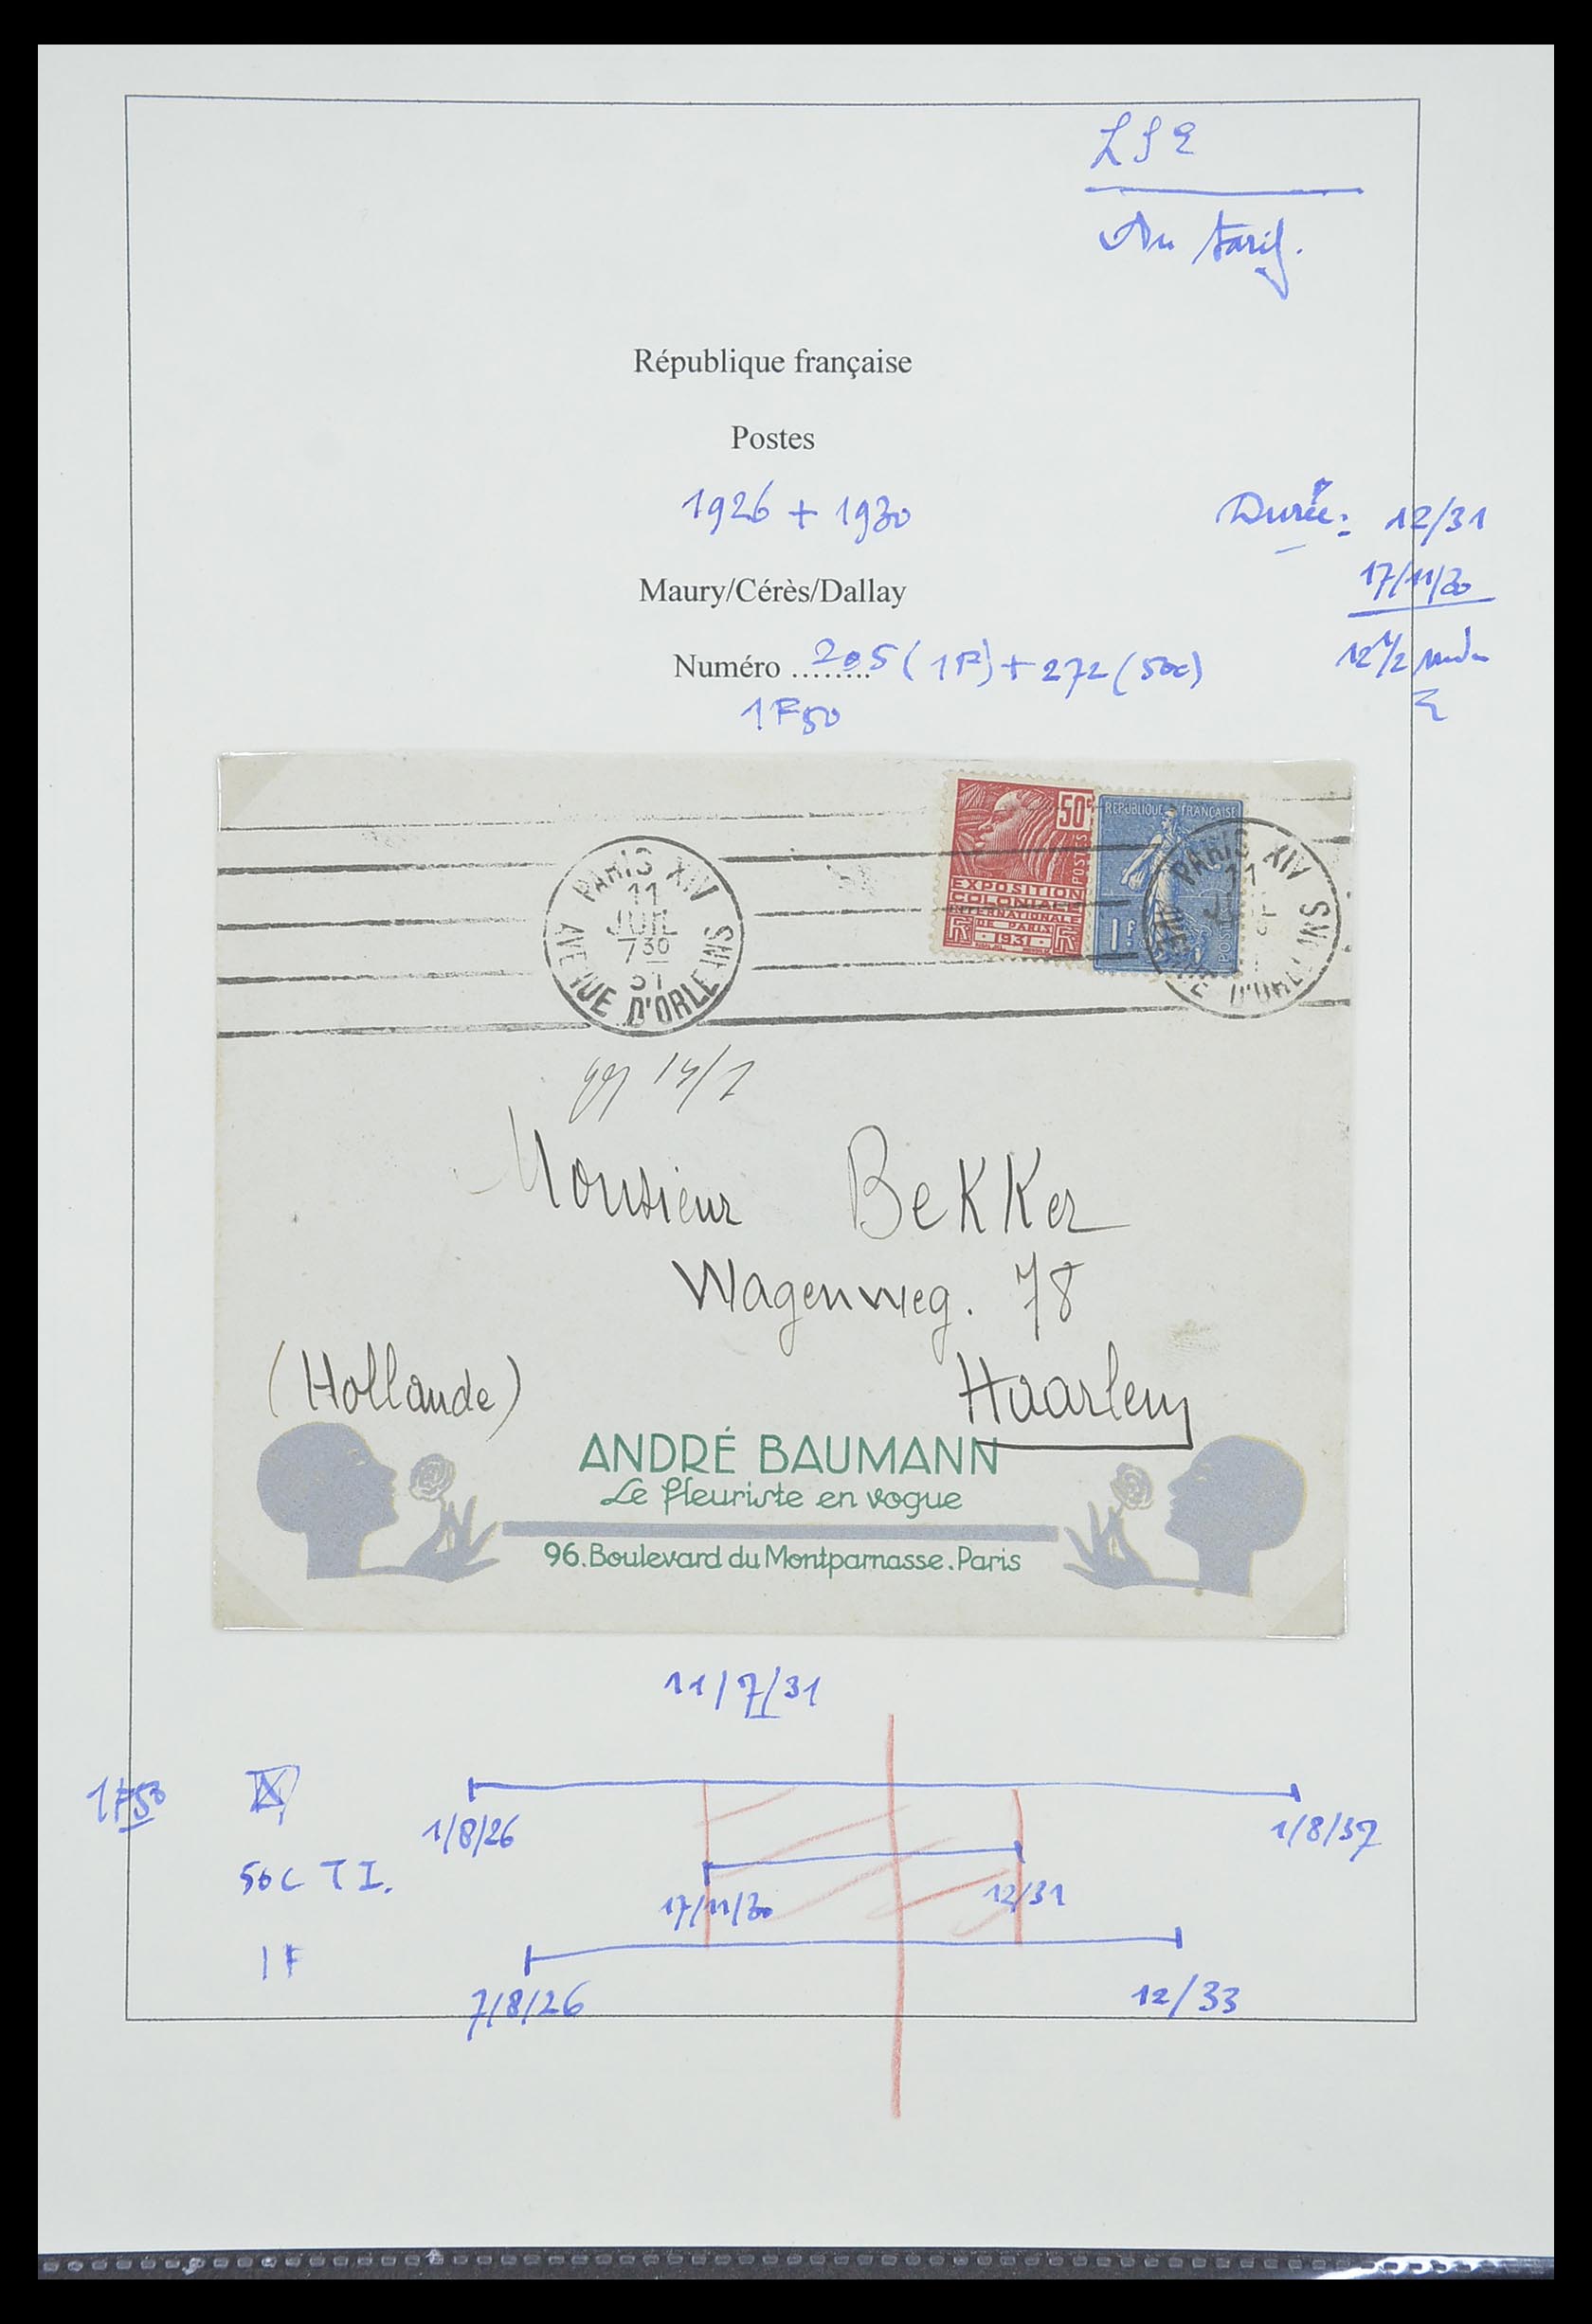 LSE
Au tarif.
République française
Postes
1926 + 1930
Durée: 12/31
17/11/30
Maury/Cérès/Dallay
12 1/2
Numéro ........ 205 (1F) + 272 (50c)
1F50
50c
POSTES
EXPOSITION
COLONIALE
INTERNATIONALE
DE PARIS
RF 1931 RF
REPUBLIQUE FRANÇAISE
1F
POSTES
PARIS XIV
11
JUIL
7 30
31
AVENUE D'ORLEANS
PARIS XIV
11
AVENUE D'ORLEANS
14/7
Monsieur BeKKer
Wagenweg. 78
(Hollande) Haarlem
ANDRÉ BAUMANN
Le fleuriste en vogue
96. Boulevard du Montparnasse. Paris
11/7/31
1F50
1/8/26 1/8/37
50c T I.
17/11/30 12/31
1F
7/8/26 12/33